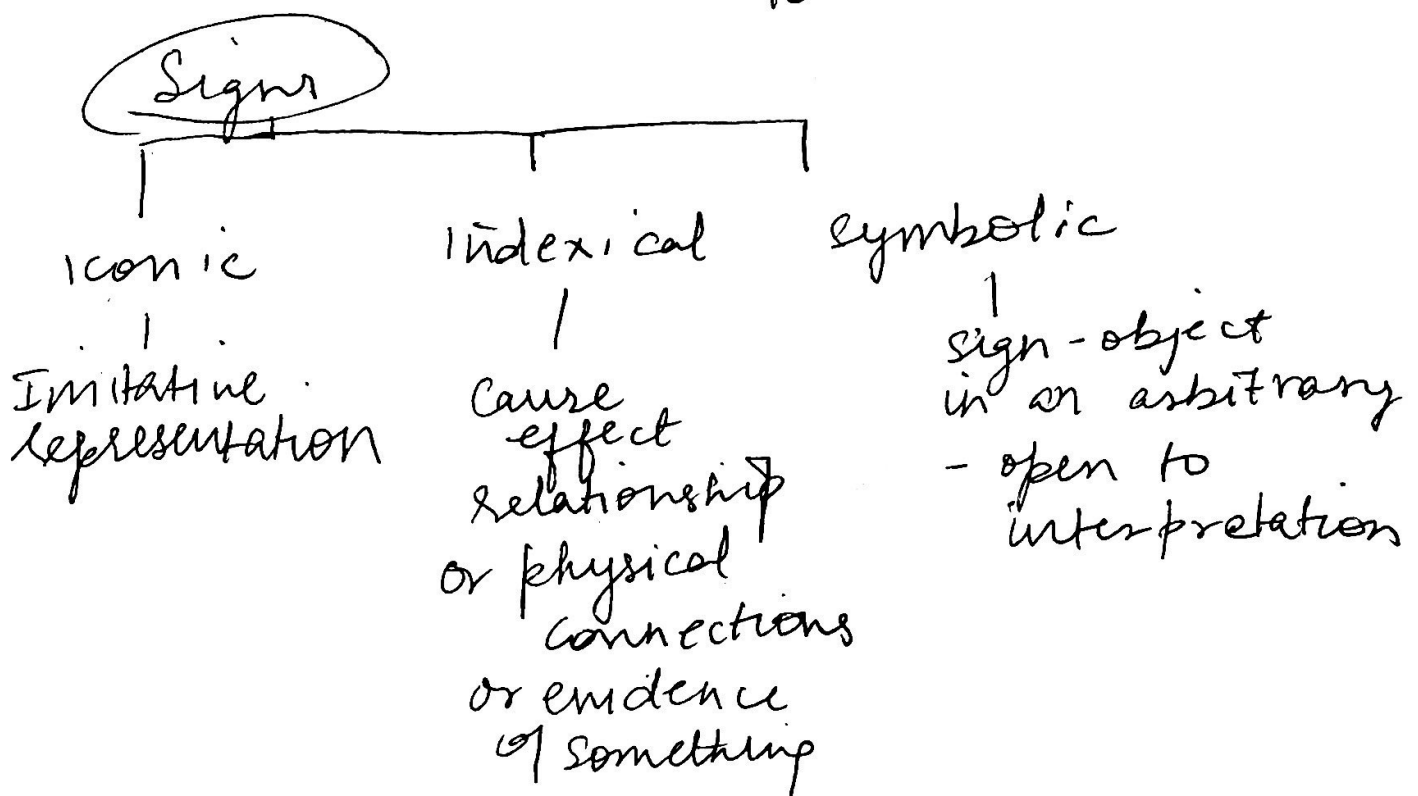 Signs
Iconic
Imitative
representation
Indexical
cause
effect
relationship
or physical
connections
or evidence
of something
symbolic
sign-object
in an arbitrary
- open to
interpretation